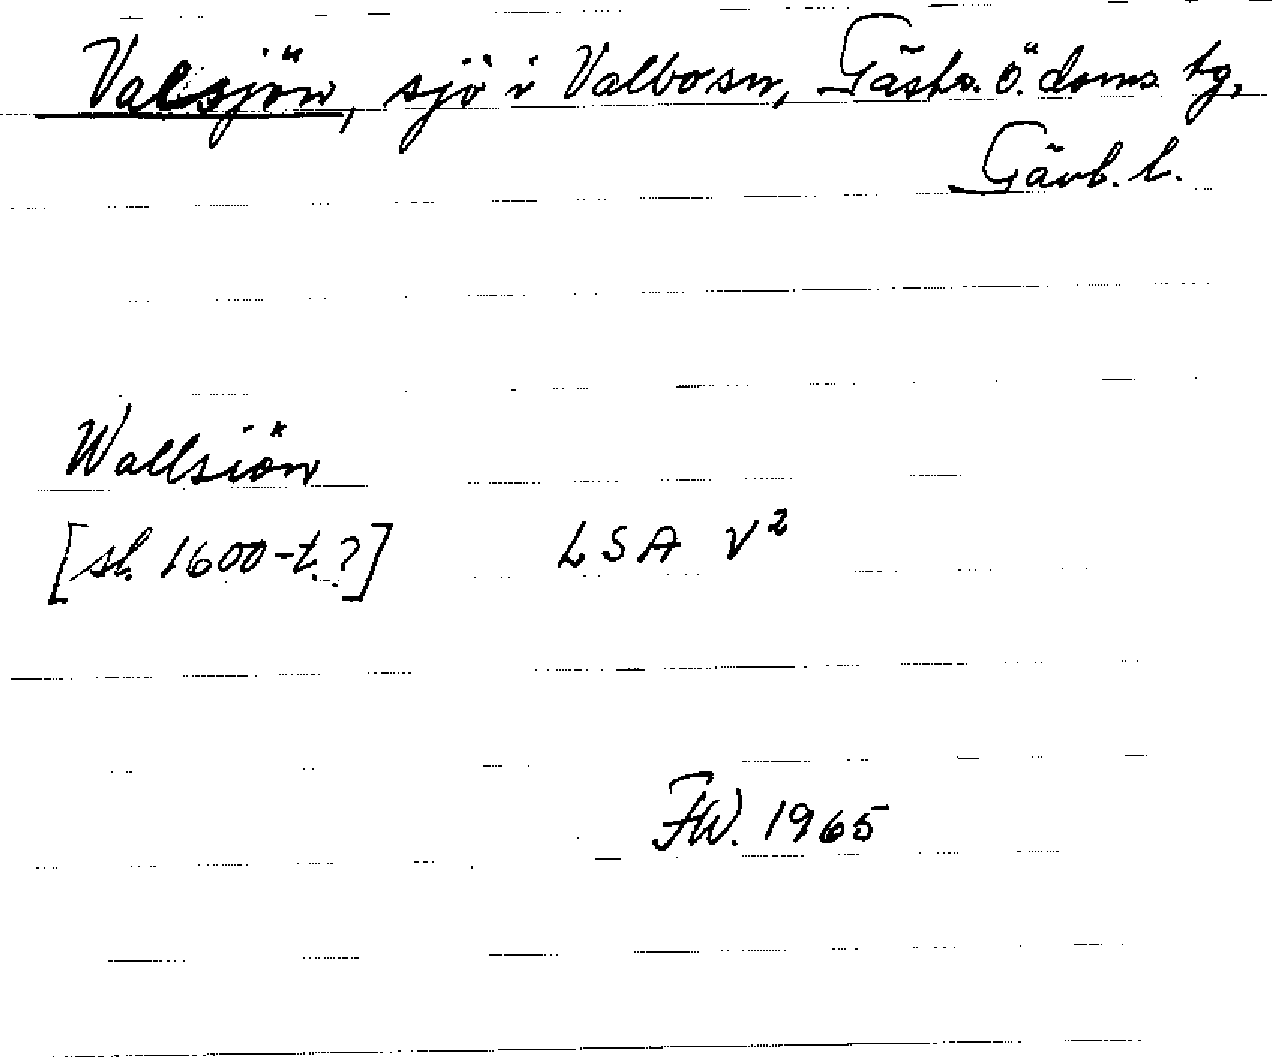 Valsjön, sjö i Valbo sn, Gästr. ö. doms. tg,
Gävl. l.
Wallsiön
[sl. 1600-t.?] LSA V²
FW. 1965